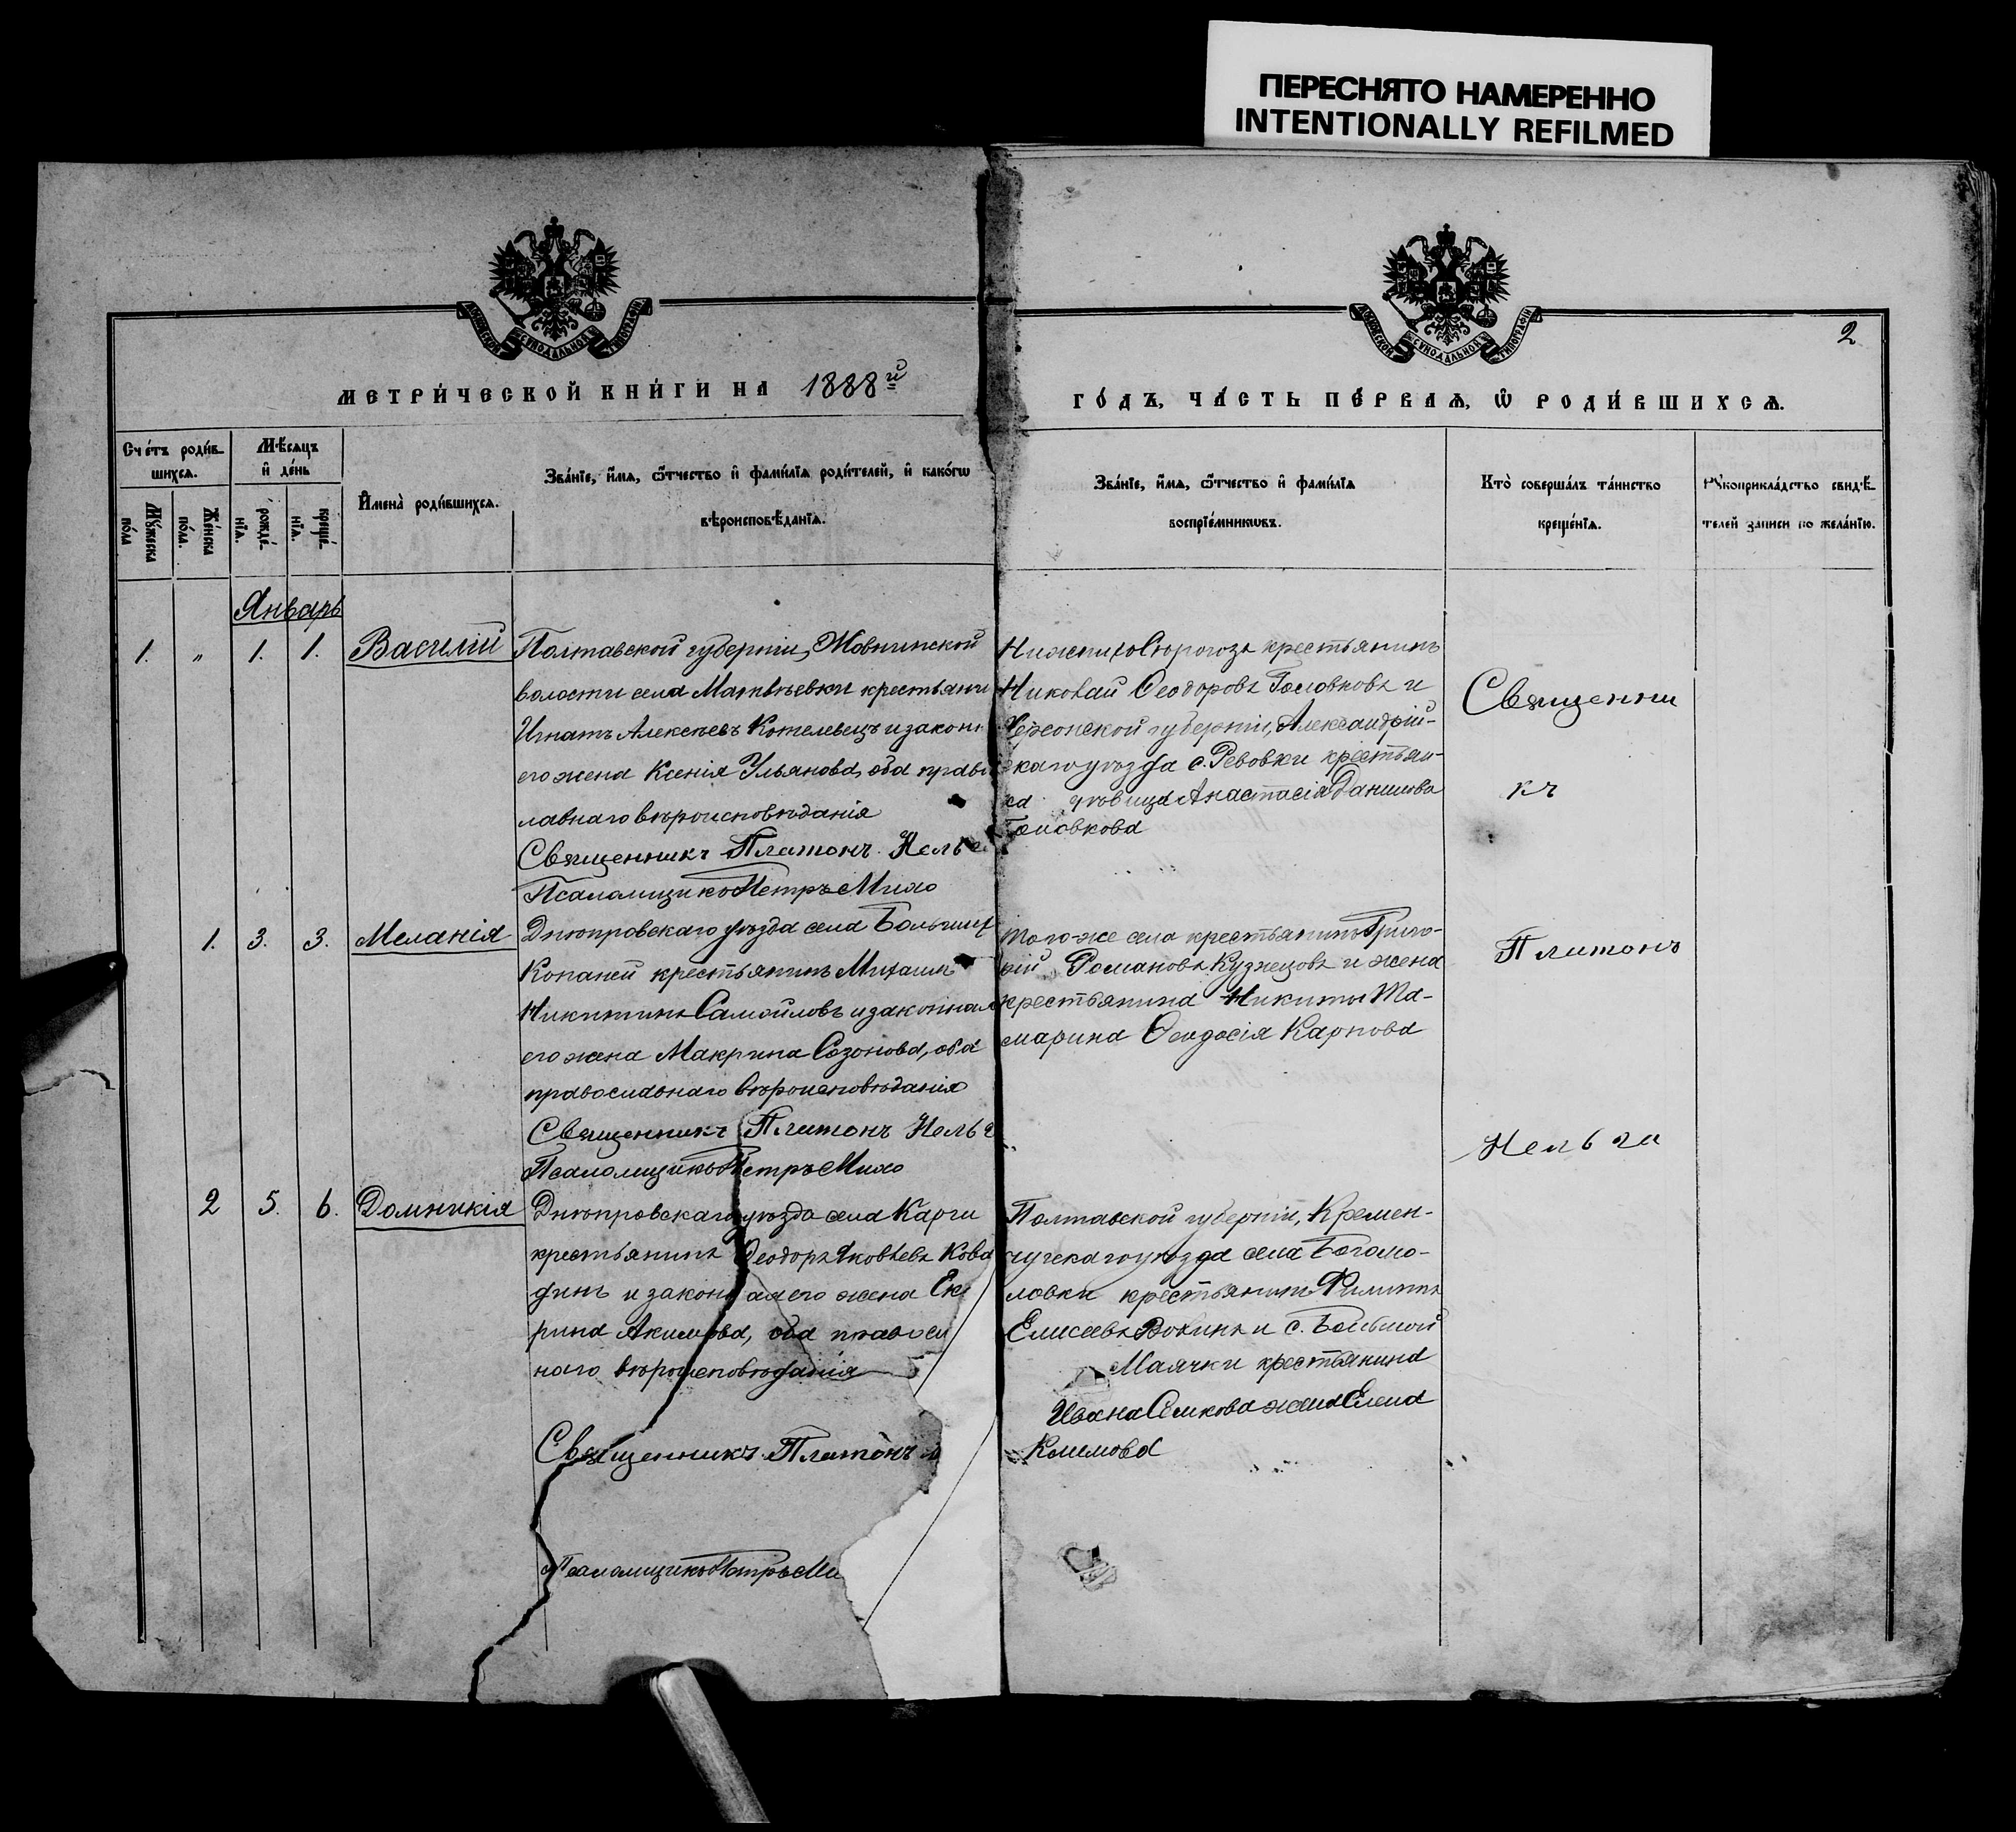 ПЕРЕСНЯТО НАМЕРЕННО
INTENTIONALLY REFILMED
2
МЕТРИ́ЧЕСКОЙ КНИ́ГИ НА 1888й
ГО́ДЪ, ЧА́СТЬ ПЕ́РВАѦ, Ѽ РОДИ́ВШИХСѦ.
Сче́тъ роди́в-
шихсѧ.
Мꙋ́жеска
по́ла
Же́нска
по́ла.
Мѣ́сѧцъ
и҆ де́нь
рожде́-
нїѧ.
креще́-
нїѧ.
И҆мена̀ роди́вшихсѧ.
Зва́нїе, и҆́мѧ, ѻ҆́тчество и҆ фами́лїѧ роди́телей, и҆ како́гѡ
вѣроисповѣ́данїѧ.
Зва́нїе, и҆́мѧ, ѻ҆́тчество и҆ фами́лїѧ
воспрїе́мникѡвъ.
Кто̀ соверша́лъ та́инство
креще́нїѧ.
Рꙋкоприкла́дство свидѣ́-
телей записи по жела́нїю.
Январь
1. " 1. 1. Василій
Полтавской губерніи, Жовнинской
волости села Матвѣевки крестьяни
Игнатъ Алексѣевъ Котелевецъ и законн
его жена Ксенія Ульянова, оба право
лавнаго вѣроисповѣданія
Священникъ Платонъ Нельг
Псаломщикъ Петръ Михо
Нижнихъ Сѣрогозъ крестьянинъ
Николай Ѳеодоровъ Головковъ и
Херсонской губерніи, Александрій-
скаго уѣзда с. Ревовки крестьян-
ка дѣвица Анастасія Данилова
Головкова
Священни
къ
1. 3. 3. Меланія
Днѣпровскаго уѣзда села Большихъ
Копаней крестьянинъ Михаилъ
Никитинъ Самойловъ и законная
его жена Макрина Созонова, оба
православнаго вѣроисповѣданія
Священникъ Платонъ Нельг
Псаломщикъ Петръ Михо
того-же села крестьянинъ Григо-
рій Романовъ Кузнецовъ и жена
крестьянина Никиты Та-
марина Ѳеодосія Карпова
Платонъ
Нельга
2 5. 6. Домникія
Днѣпровскаго уѣзда села Карги
крестьянинъ Ѳеодоръ Яковлевъ Кова
динъ и законная его жена Ек
рина Акимова, оба правосл
наго вѣроисповѣданія
Священникъ Платонъ
Псаломщикъ Петръ Ми
Полтавской губерніи, Кремен-
чугскаго уѣзда села Богомо-
ловки крестьянинъ Филиппъ
Елисеевъ Вовинъ и с. Большой
Маячки крестьянина
Ивана Сѣмкова жена Елена
Климова